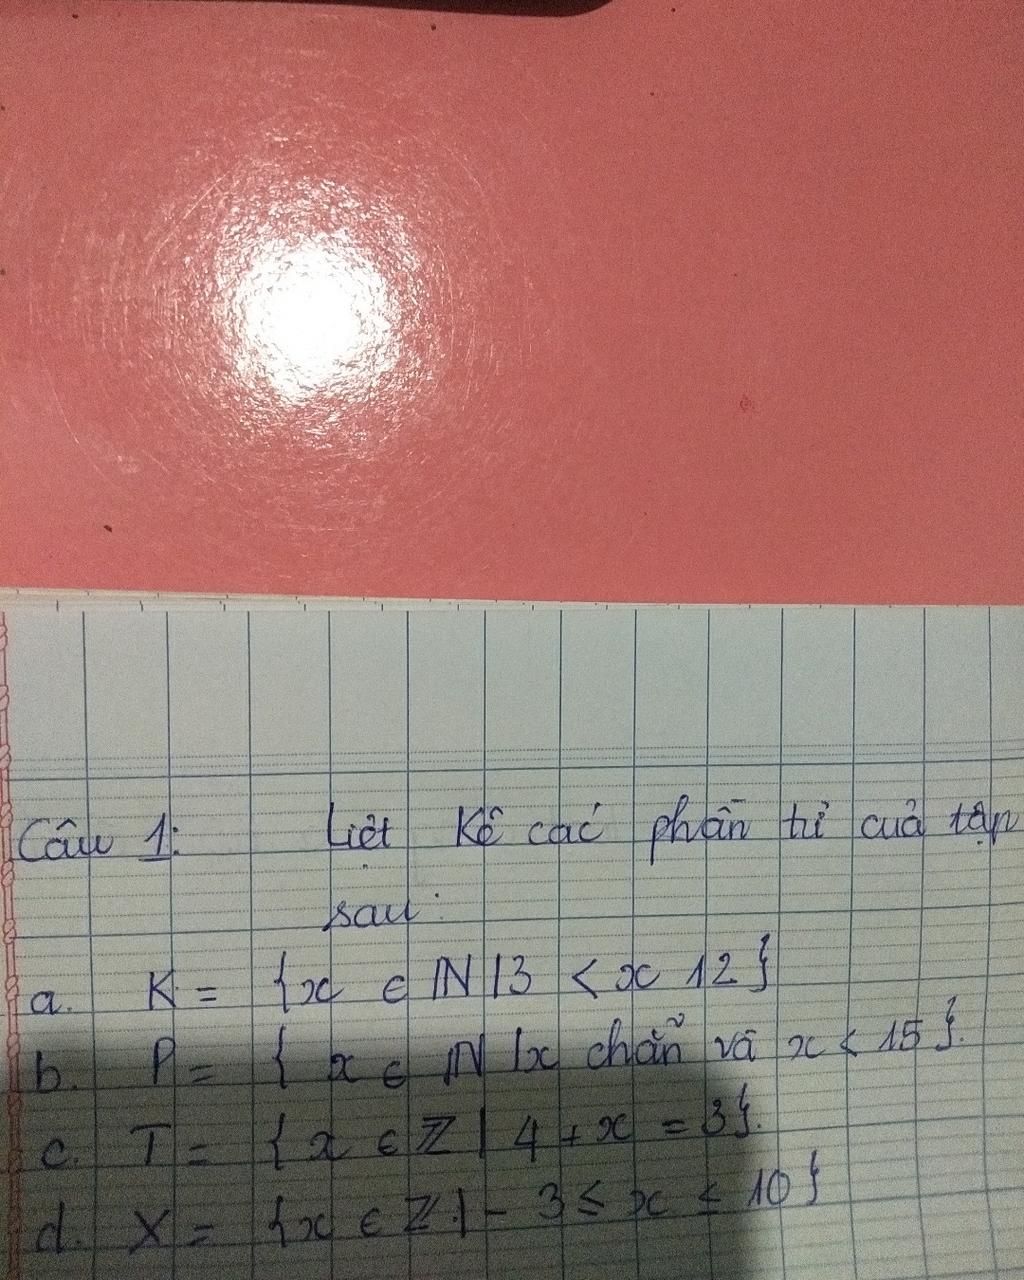 Câu 1: Liệt kê các phần tử của tập
sau:
a. K = {x ∈ ℕ | 3 < x 12}
b. P = { x ∈ ℕ | x chẵn và x < 15}.
c. T = {x ∈ ℤ | 4 + x = 3}.
d. X = {x ∈ ℤ | - 3 ≤ x ≤ 10}